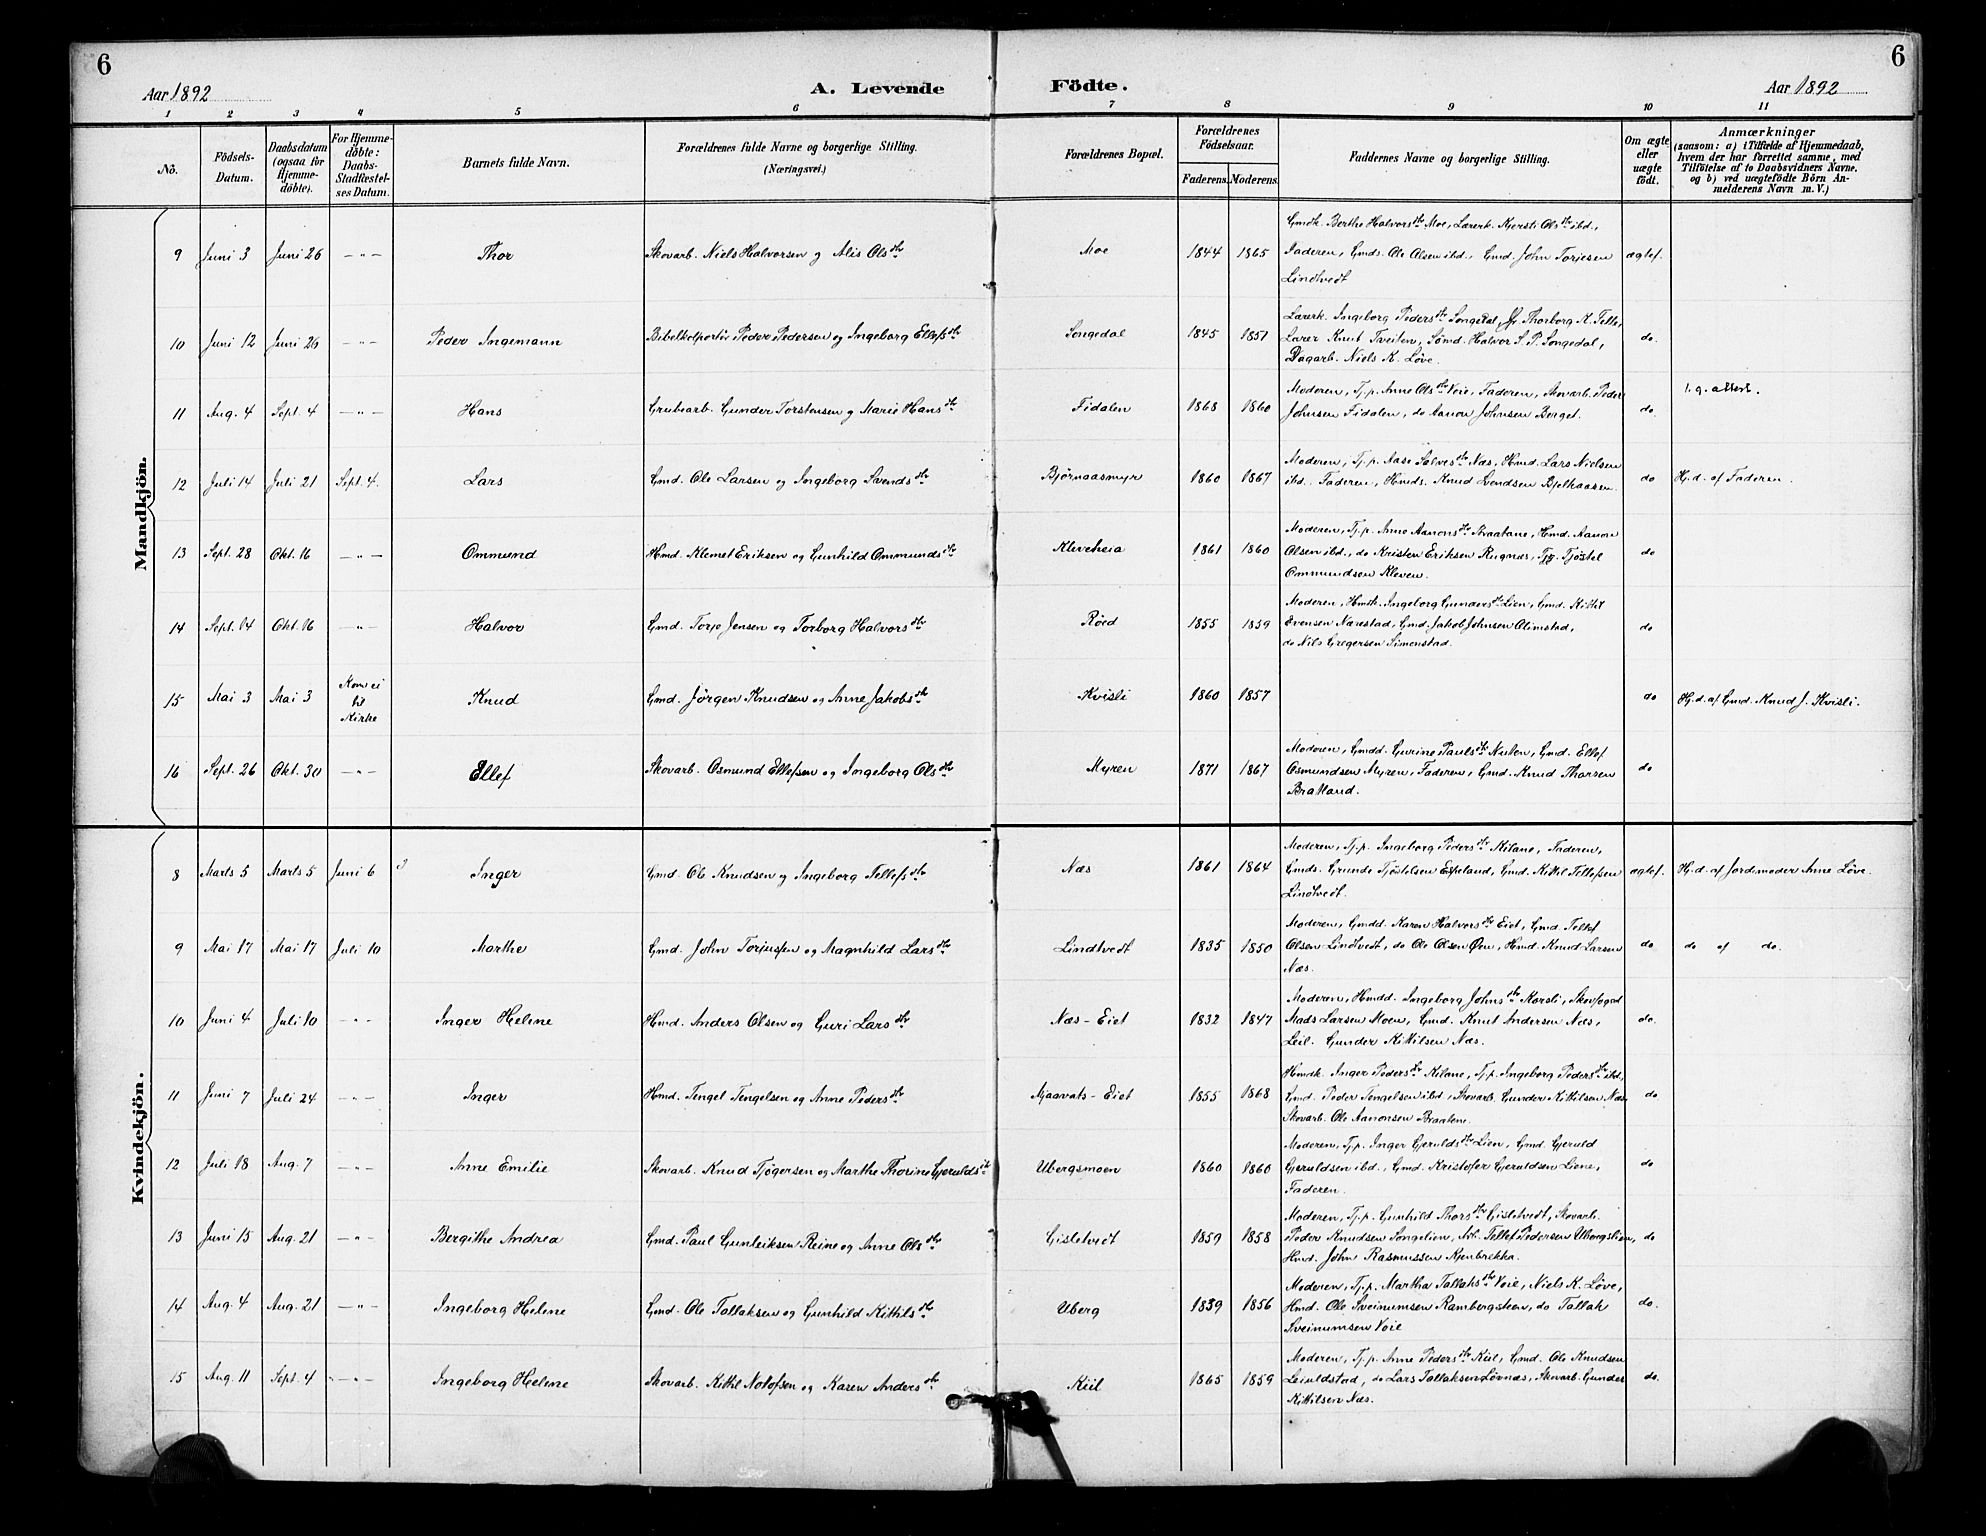 6
Aar 1892
A. Levende
Födte.
6
Aar 1892
1 2 3 4 5 6 7 8 9 10 11
No.
Födsels-Datum.
Daabsdatum (ogsaa for Hjemme-döbte).
For Hjemme-döbte: Daabs-Stadfæstel-ses Datum.
Barnets fulde Navn.
Forældrenes fulde Navne og borgerlige Stilling. (Næringsvei.)
Forældrenes Bopæl.
Forældrenes Födselsaar.
Faderens. Moderens.
Faddernes Navne og borgerlige Stilling.
Om ægte eller uægte födt.
Anmærkninger
(saasom: a) i Tilfælde af Hjemmedaab, hvem der har forrettet samme, med Tilföielse af to Daabsvidners Navne. og b) ved uægtefödte Börn Anmelderens Navn m.V.)
Mandkjön.
9 Juni 3 Juni 26 — " — Thor Skovarb. Niels Halvorsen og Alis Olsdtr Moe 1844 1865 Gmdk. Berthe Halvorsdtr Moe, Lærerk. Kjersti Olsdtr ibd., ægtef.
Faderen, Gmds. Ole Olsen ibd., Gmd. John Torjesen
Lindtvedt
10 Juni 12 Juni 26 — " — Peder Ingemann Bibelkolportör Peder Pedersen og Ingeborg Ellefsdtr Songedal 1845 1851 Lærerk. Ingeborg Pedersdtr Songedal, Thorborg K. Telle, do.
Lærer Knut Tveiten, Sömd. Halvor S. P. Songedal,
Dagarb. Niels K. Löve.
11 Aug. 4 Sept. 4 — " — Hans Grubearb. Gunder Torstensen og Marie Hansdtr Fidalen 1868 1860 Moderen, Tj.p. Anne Olsdtr Voie, Faderen, Skovarb. Peder do
Johnsen Fidalen, do Aanon Johnsen Berget.
l. g. attest.
12 Juli 14 Juli 21 Sept. 4. Lars Gmd. Ole Larsen og Ingeborg Svendsdtr Bjørnaasmyr 1860 1867 Moderen, Tj.p. Aase Salvesdtr Næs, Hmd. Lars Nielsen do Hj.d. af Faderen.
ibd. Faderen, Hmds. Knud Svendsen Bjelkaasen.
13 Sept. 28 Okt. 16 — " — Ommund Hmd. Klemet Eriksen og Gunhild Ommundsdtr Kleveheia 1861 1860 Moderen, Tj.p. Anne Aanonsdtr Braatane, Hmd. Aanon do
Olsen ibd., do Kristen Eriksen Rugnæs, Tjg. Tjöstel
Ommundsen Kleven.
14 Sept. 14 Okt. 16 — " — Halvor Gmd. Torje Jensen og Torborg Halvorsdtr Röed 1855 1859 Moderen, Hmdk. Ingeborg Gundersdtr Lien, Gmd. Kittil do
Evensen Narestad, Gmd. Jakob Johnsen Alimstad,
do Nils Gregersen Simonstad.
15 Mai 3 Mai 3 Kom ei til Kirke Knud Gmd. Jörgen Knudsen og Anne Jakobsdtr Kvisli 1860 1857 do Hj.d. af Gmd. Knud J. Kvisli.
16 Sept. 26 Okt. 30 — " — Ellef Skovarb. Osmund Ellefsen og Ingeborg Olsdtr Myren 1871 1867 Moderen, Gmdd. Gurine Paulsdtr Nuten, Gmd. Ellef do
Osmundsen Myren, Faderen, Gmd. Knud Thorsen
Bratland.
Kvindekjön.
8 Marts 5 Marts 5 Juni 6 Inger Gmd. Ole Knudsen og Ingeborg Tellefsdtr Næs 1861 1864 Moderen, Tj.p. Ingeborg Pedersdtr Kilane, Faderen, ægtef. Hj.d. af Jordmoder Anne Löve.
Gmds. Grunde Tjöstelsen Espeland, Gmd. Kittil Tellefsen
Lindtvedt.
9 Mai 17 Mai 17 Juli 10 Marthe Gmd. John Torjusen og Magnhild Larsdtr Lindtvedt 1835 1850 Moderen, Gmdd. Karen Halvorsdtr Eiet, Gmd. Tellef do do af do.
Olsen Lindtvedt, do Ole Olsen Öen, Hmd. Knud Larsen
Næs.
10 Juni 4 Juli 10 — " — Inger Helene Hmd. Anders Olsen og Guri Larsdtr Næs-Eiet 1832 1847 Moderen, Hmdd. Ingeborg Johnsdtr Korsli, Skovfoged do.
Mads Larsen Moen, Gmd. Knut Andersen Næs,
Leil. Gunder Kittilsen Næs.
11 Juni 7 Juli 24 — " — Inger Hmd. Tengel Tengelsen og Anne Pedersdtr Mjaavats-Eiet 1855 1868 Hmdk. Inger Pedersdtr Kilane, Tj.p. Ingeborg Pedersdtr ibd., do
Gmd. Peder Tengelsen ibd, Skovarb. Gunder Kittilsen Næs
Skovarb. Ole Aanonsen Braatene.
12 Juli 18 Aug. 7 — " — Anne Emilie Skovarb. Knud Tjögersen og Marthe Thorine Gjeruldsdtr Ubergsmoen 1860 1860 Moderen, Tj.p. Inger Gjeruldsdtr Lien, Gmd. Gjeruld do
Gjeruldsen ibd., Gmd. Kristofer Gjeruldsen Liene,
Faderen.
13 Juni 15 Aug. 21 — " — Bergithe Andrea Gmd. Paul Gunleiksen Reine og Anne Olsdtr Gisletvedt 1859 1858 Moderen, Tj.p. Gunhild Thorsdtr Gisletvedt, Skovarb. do
Peder Knudsen Songelien, Arb. Tellef Pedersen Ubergslien,
Hmd. John Rasmussen Kjenbrekka.
14 Aug. 4 Aug. 21 — " — Ingeborg Helene Gmd. Ole Tallaksen og Gunhild Kittilsdtr Uberg 1839 1856 Moderen, Tj.p. Martha Tallaksdtr Voie, Niels K. Löve, do.
Hmd. Ole Sveinumsen Rambergsteen, do Tallak
Sveinumsen Voie
15 Aug. 11 Sept. 4 — " — Ingeborg Helene Skovarb. Kittil Notofsen og Karen Andersdtr Kiil 1865 1859 Moderen, Tj.p. Anne Pedersdtr Kiil, Gmd. Ole Knudsen do.
Leiuldstad, do Lars Tallaksen Lövnæs, Skovarb. Gunder
Kittilsen Næs.